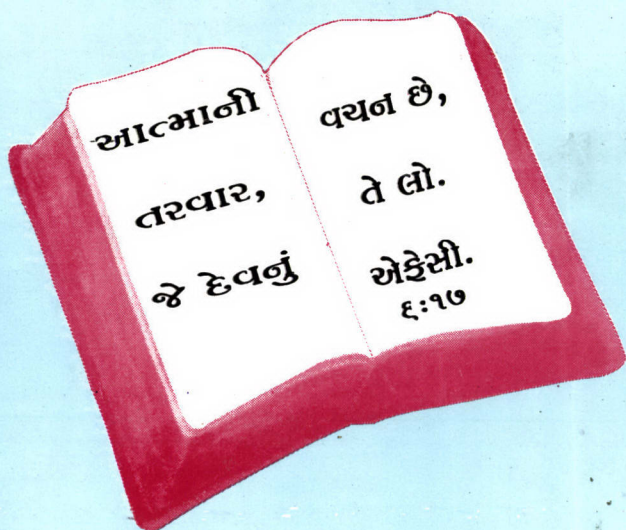 આત્માની
તરવાર,
જે દેવનું
વચન છે,
તે લો.
એફેસી.
૬:૧૭